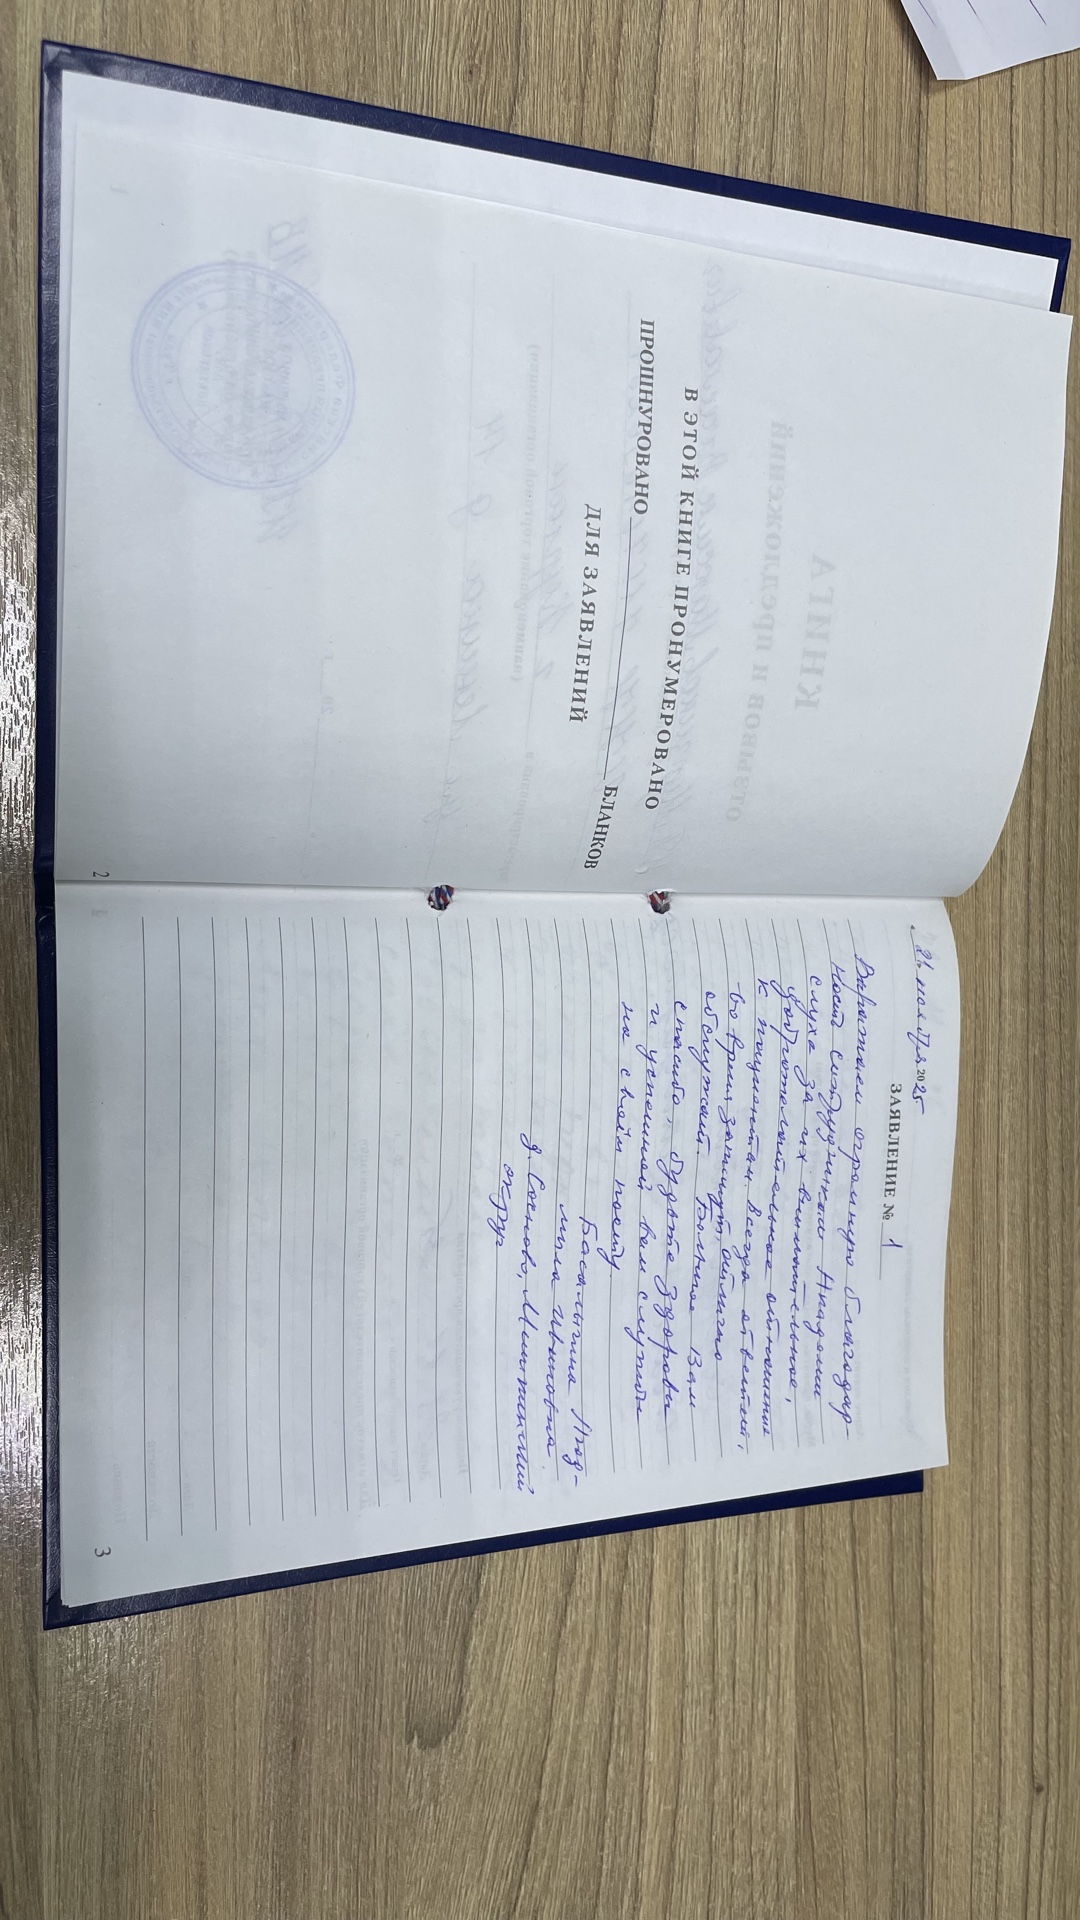 В ЭТОЙ КНИГЕ ПРОНУМЕРОВАНО
ПРОШНУРОВАНО БЛАНКОВ
ДЛЯ ЗАЯВЛЕНИЙ
2
21 ноября 2025
ЗАЯВЛЕНИЕ № 1
Выражаем огромную благодар-
ность сотрудникам Академии
слуха за их внимательное,
доброжелательное отношение
к пациентам. Всегда ответят,
во время запишут, отлично
обслужат. Большое Вам
спасибо, будьте здоровы
и успешной вам службы
на своём посту.
Басалыгина Люд-
мила Ивановна.
д. Сосново,
округ
3